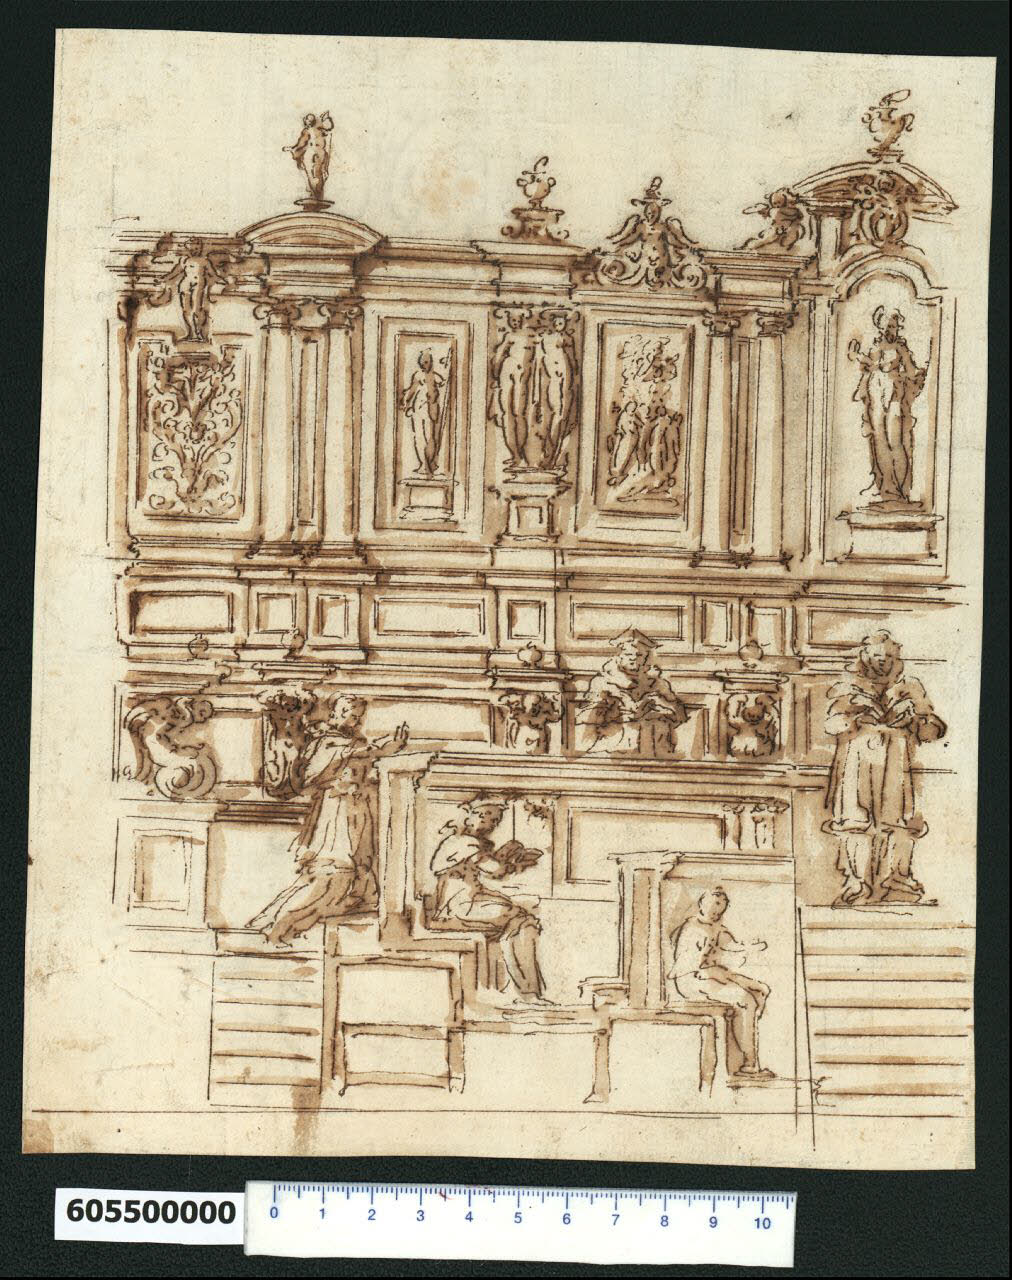 605500000
0 1 2 3 4 5 6 7 8 9 10